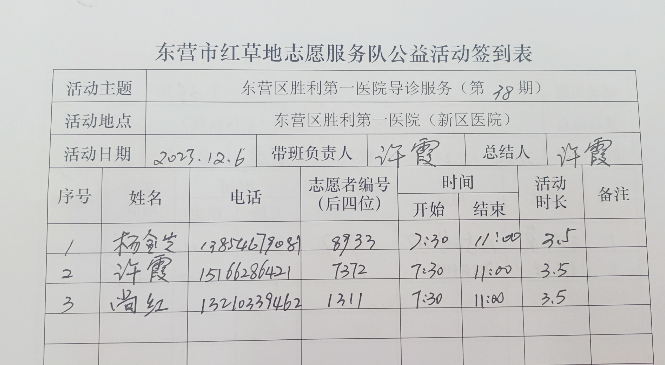 东营市红草地志愿服务队公益活动签到表
活动主题 东营区胜利第一医院导诊服务（第 38 期）
活动地点 东营区胜利第一医院（新区医院）
活动日期 2023.12.6 带班负责人 许霞 总结人 许霞
序号 姓名 电话 志愿者编号（后四位） 时间 开始 结束 活动时长 备注
1 杨 13854679089 8933 7:30 11:00 3.5
2 许霞 15166286421 7372 7:30 11:00 3.5
3 尚红 13210339462 1311 7:30 11:00 3.5